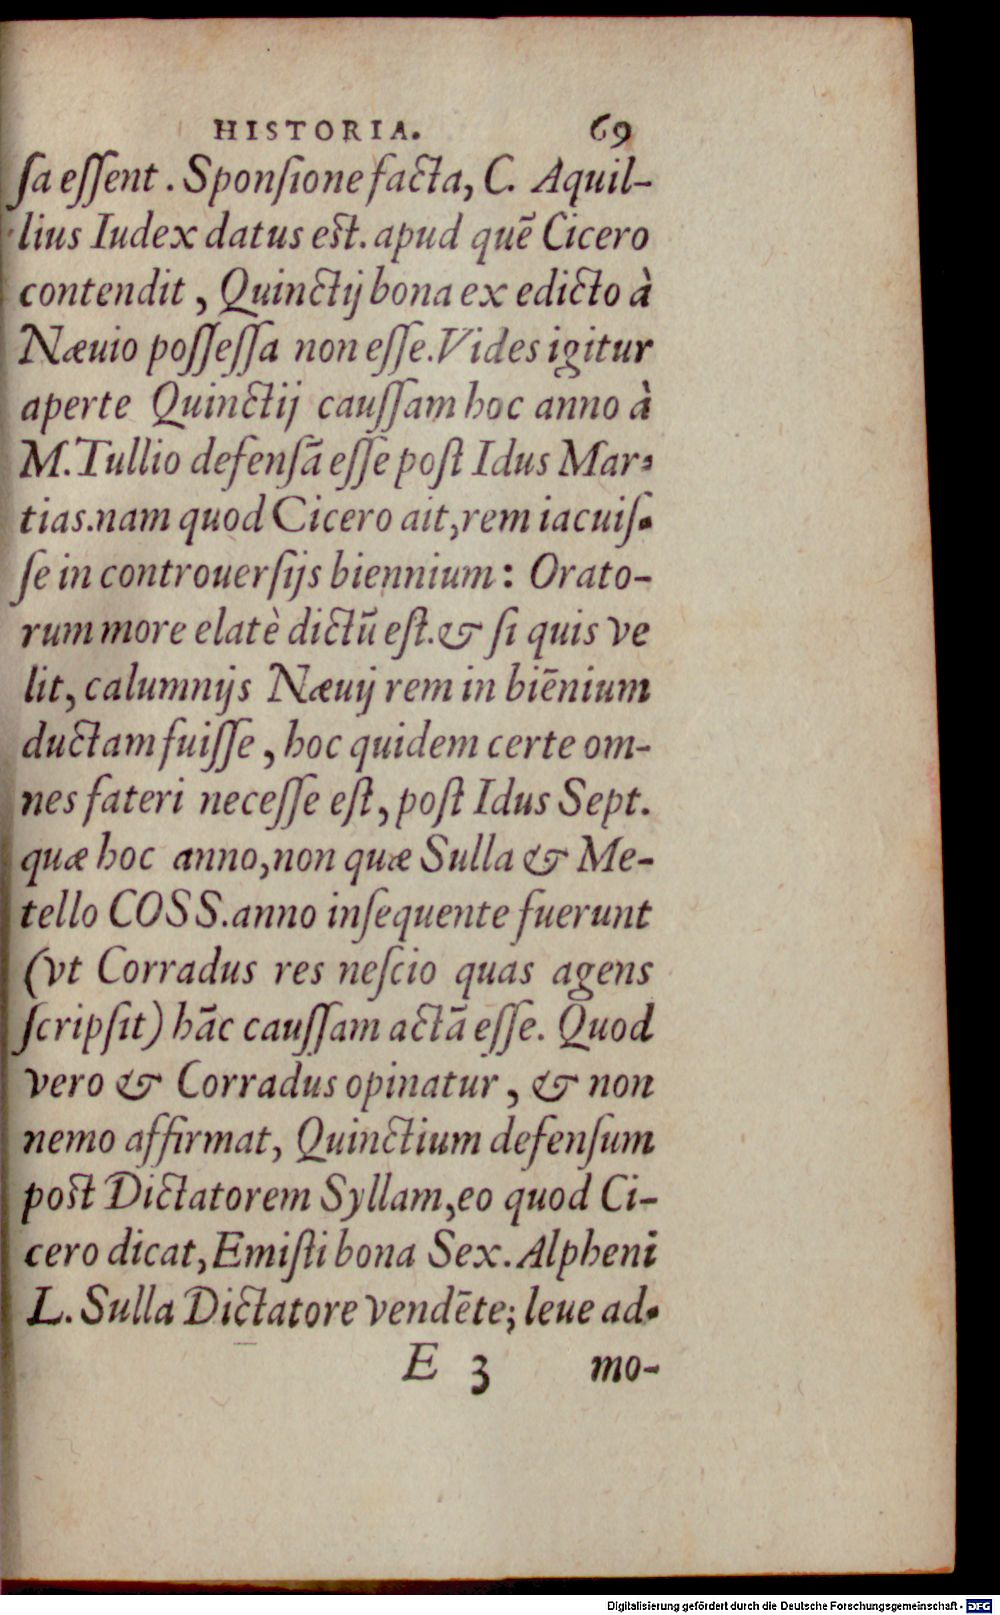 HISTORIA. 69
ſa eſſent. Sponſione facta, C. Aquil-
lius Iudex datus est. apud quē Cicero
contendit, Quinctij bona ex edicto à
Næuio poſſeſſa non eſſe. Vides igitur
aperte Quinctij cauſſam hoc anno à
M. Tullio defenſã eſſe poſt Idus Mar-
tias. nam quod Cicero ait, rem iacuiſ-
ſe in controuerſijs biennium: Orato-
rum more elatè dictũ eſt. & ſi quis ve
lit, calumnijs Næuij rem in biēnium
ductam fuiſſe, hoc quidem certe om-
nes fateri neceſſe eſt, poſt Idus Sept.
quæ hoc anno, non quæ Sulla & Me-
tello COSS. anno inſequente fuerunt
(vt Corradus res neſcio quas agens
ſcripſit) hãc cauſſam actã eſſe. Quod
vero & Corradus opinatur, & non
nemo affirmat, Quinctium defenſum
post Dictatorem Syllam, eo quod Ci-
cero dicat, Emiſti bona Sex. Alpheni
L. Sulla Dictatore vendēte; leue ad-
E 3 mo-
Digitalisierung gefördert durch die Deutsche Forschungsgemeinschaft - DFG